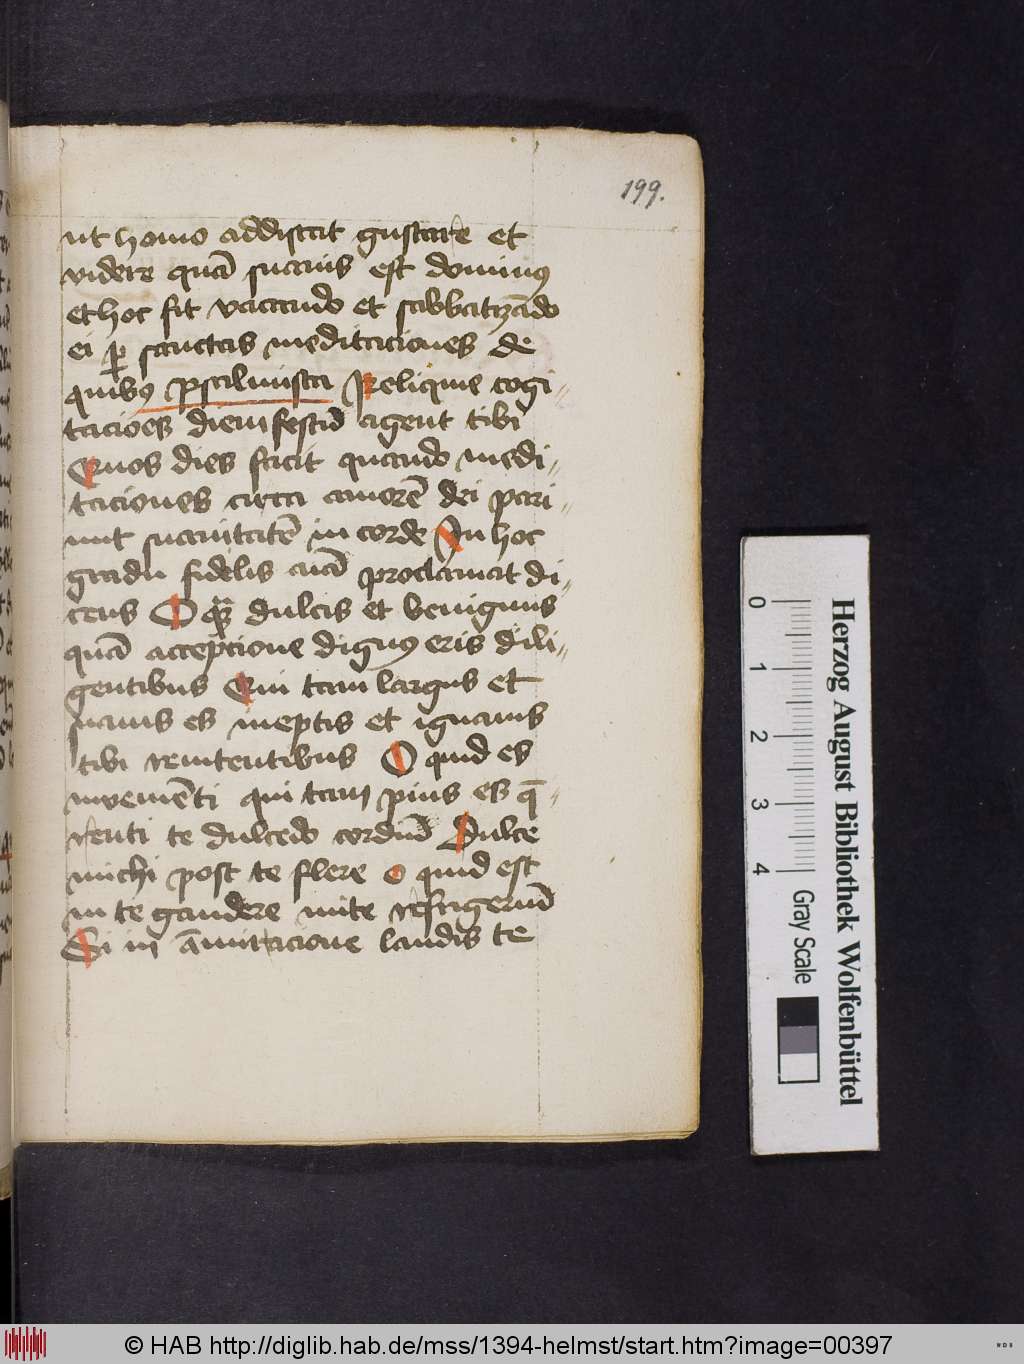 199.
ut homo addiscat gustare et
videre quā suauis est dominꝰ
et hoc fit vacando et sabbatizādo
ei ꝑ sanctas meditaciones de
quibꝰ psalmista Reliquie cogi-
tacioēs diem festū agent tibi
Quos dies facit quando medi-
taciones circa amorē dei pari-
unt suauitatē in corde In hoc
gradu fidelis aīa proclamat di-
cens O qᷓꝫ dulcis et benignus
quā acceptione dignꝰ eris dili-
gentibus Qui tam largus et
suauis es ineptis et ignauis
tibi renitentibus O quid es
inueniēti qui tam pius es q̄-
renti te dulcedo cordiū Dulce
michi post te flere o quid est
in te gaudere uite refrigeriū
Si in āmiracione laudis te
Herzog August Bibliothek Wolfenbüttel
0 1 2 3 4
Gray Scale
© HAB http://diglib.hab.de/mss/1394-helmst/start.htm?image=00397